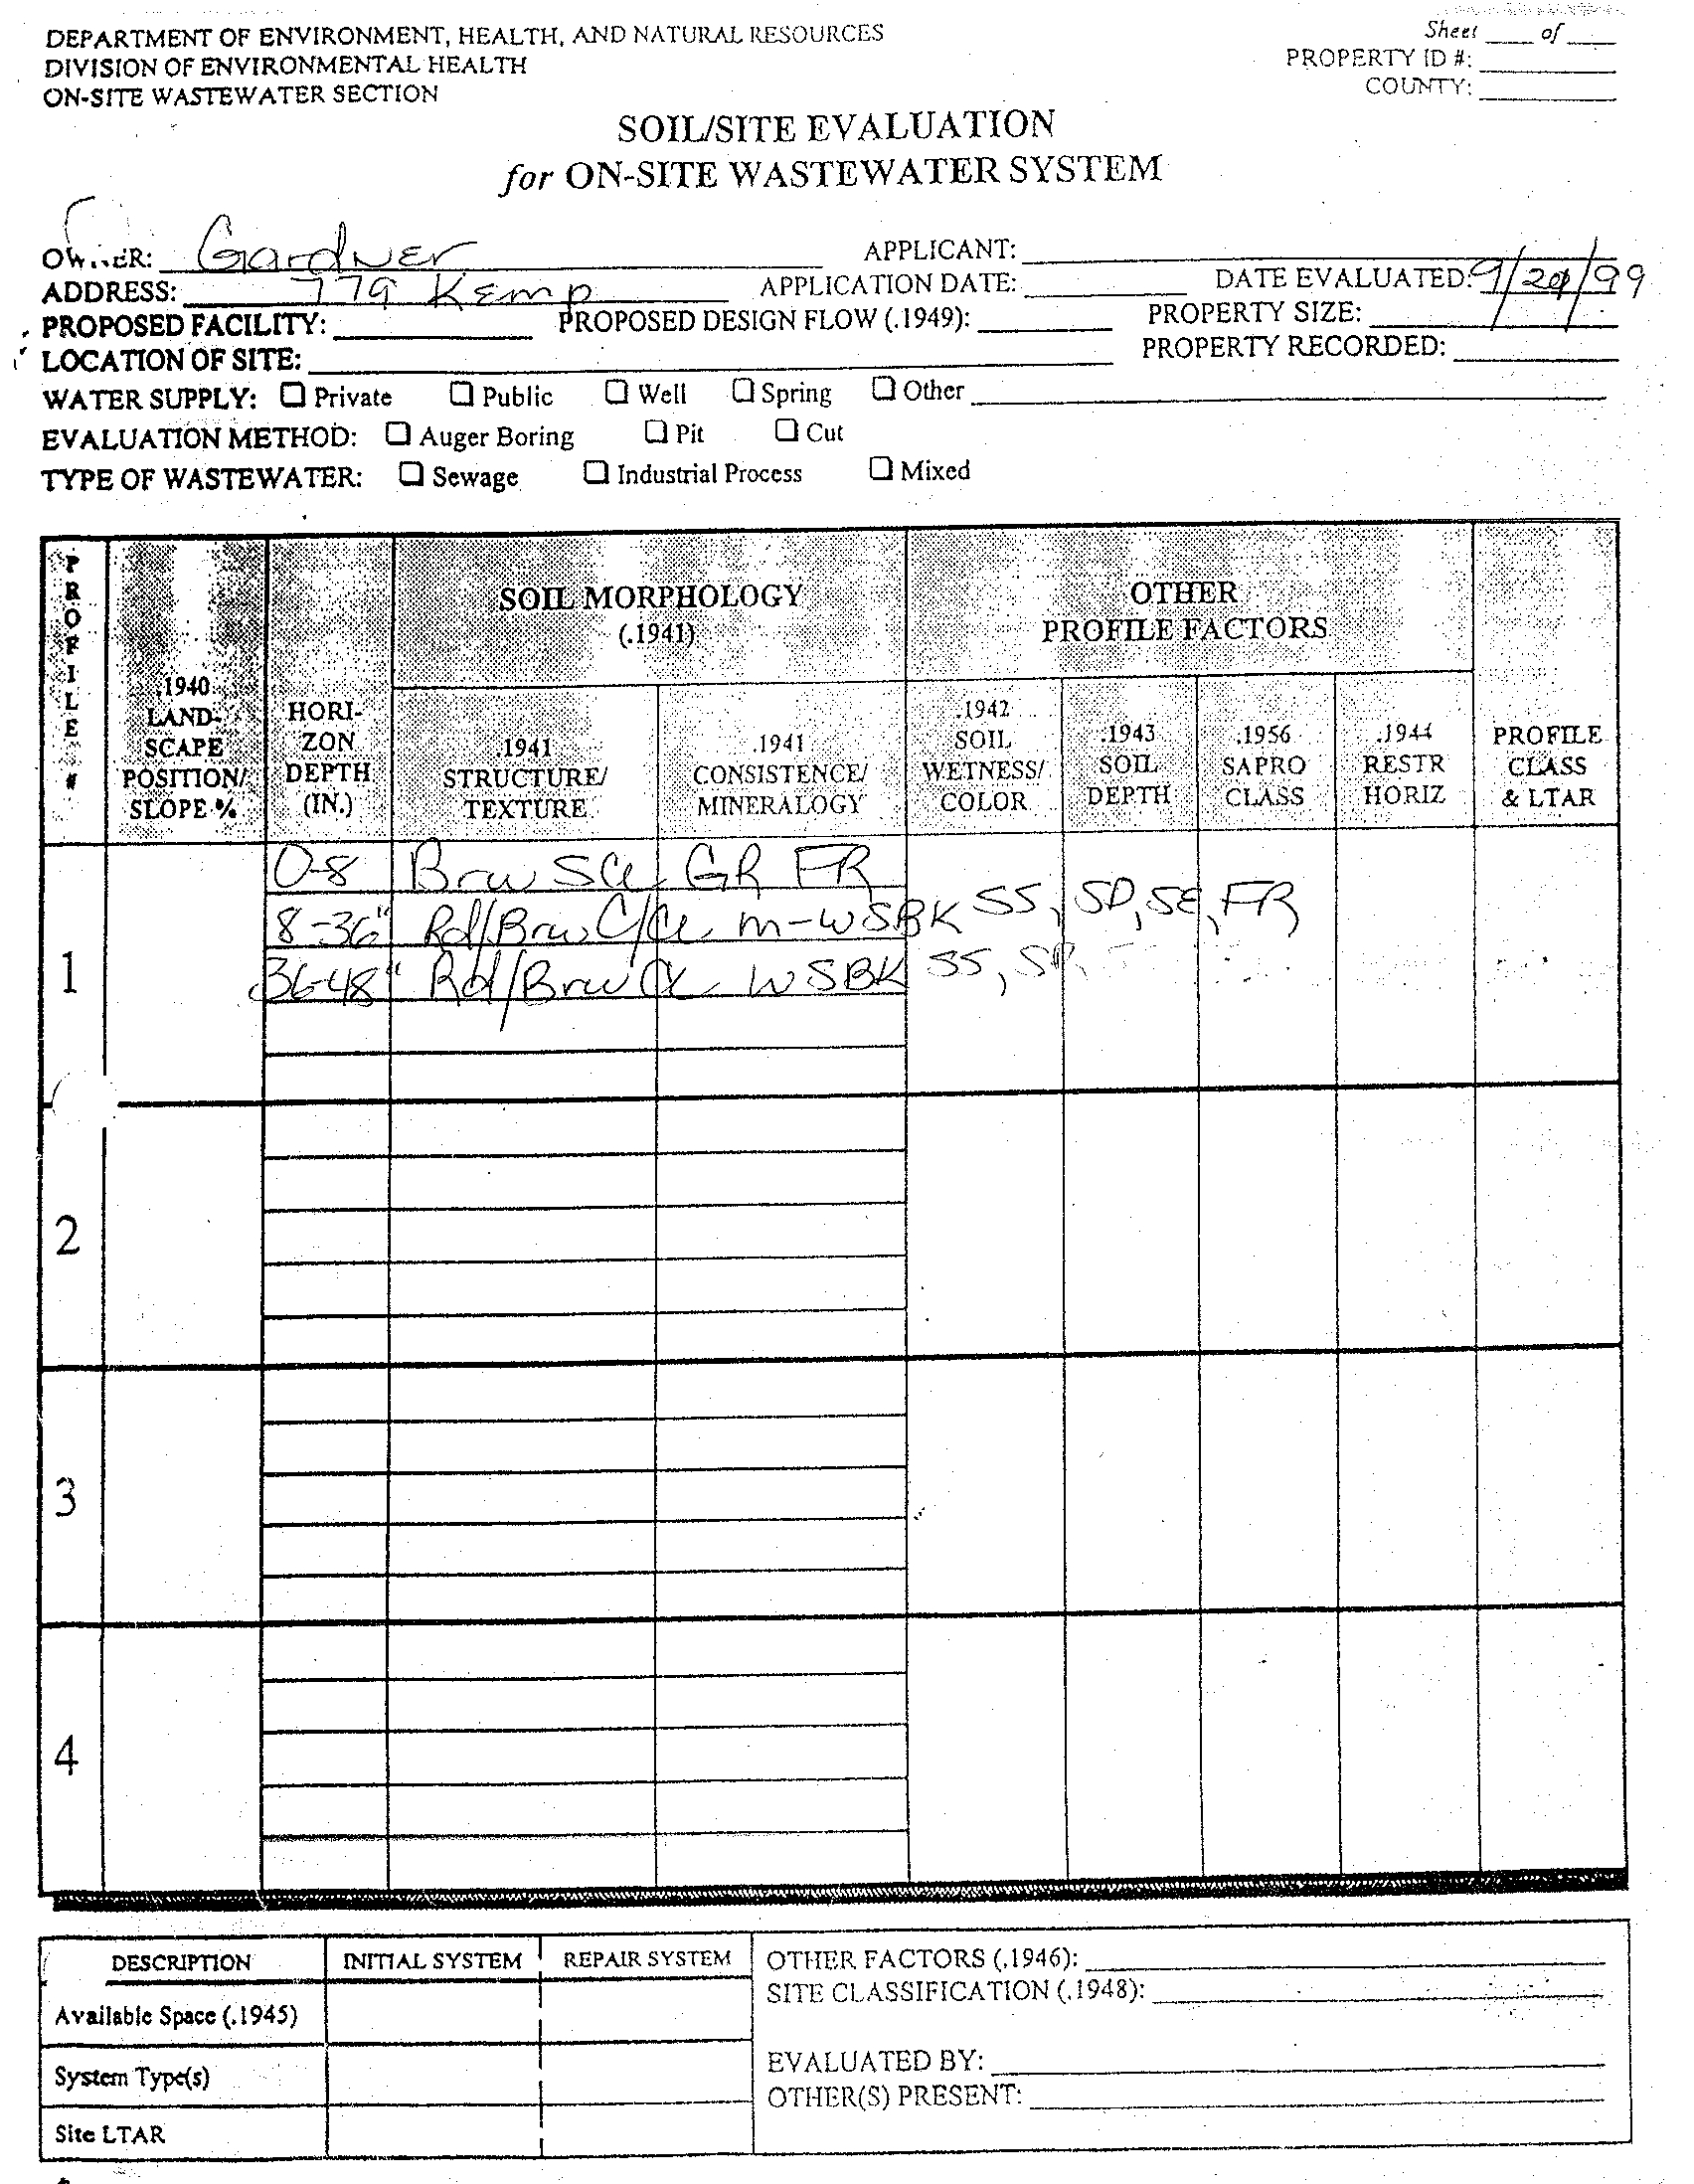 DEPARTMENT OF ENVIRONMENT, HEALTH, AND NATURAL RESOURCES
DIVISION OF ENVIRONMENTAL HEALTH
ON-SITE WASTEWATER SECTION
Sheet ____ of ____
PROPERTY ID #:
COUNTY:
SOIL/SITE EVALUATION
for ON-SITE WASTEWATER SYSTEM
OWNER: Gardner APPLICANT:
ADDRESS: 779 Kemp APPLICATION DATE: DATE EVALUATED: 9/ /99
PROPOSED FACILITY: PROPOSED DESIGN FLOW (.1949): PROPERTY SIZE:
LOCATION OF SITE: PROPERTY RECORDED:
WATER SUPPLY: ☐ Private ☐ Public ☐ Well ☐ Spring ☐ Other
EVALUATION METHOD: ☐ Auger Boring ☐ Pit ☐ Cut
TYPE OF WASTEWATER: ☐ Sewage ☐ Industrial Process ☐ Mixed
PROFILE #
.1940 LAND-SCAPE POSITION/ SLOPE %
HORI-ZON DEPTH (IN.)
SOIL MORPHOLOGY (.1941)
.1941 STRUCTURE/ TEXTURE
.1941 CONSISTENCE/ MINERALOGY
OTHER PROFILE FACTORS
.1942 SOIL WETNESS/ COLOR
.1943 SOIL DEPTH
.1956 SAPRO CLASS
.1944 RESTR HORIZ
PROFILE CLASS & LTAR
1
0-8 Brw SCL GR FR
8-36" Rd/Brw C/CL m-wSBK SS, SP, SE, FR
36-48" Rd/Brw CL wSBK SS, SP,
2
3
4
DESCRIPTION INITIAL SYSTEM REPAIR SYSTEM
Available Space (.1945)
System Type(s)
Site LTAR
OTHER FACTORS (.1946):
SITE CLASSIFICATION (.1948):
EVALUATED BY:
OTHER(S) PRESENT: